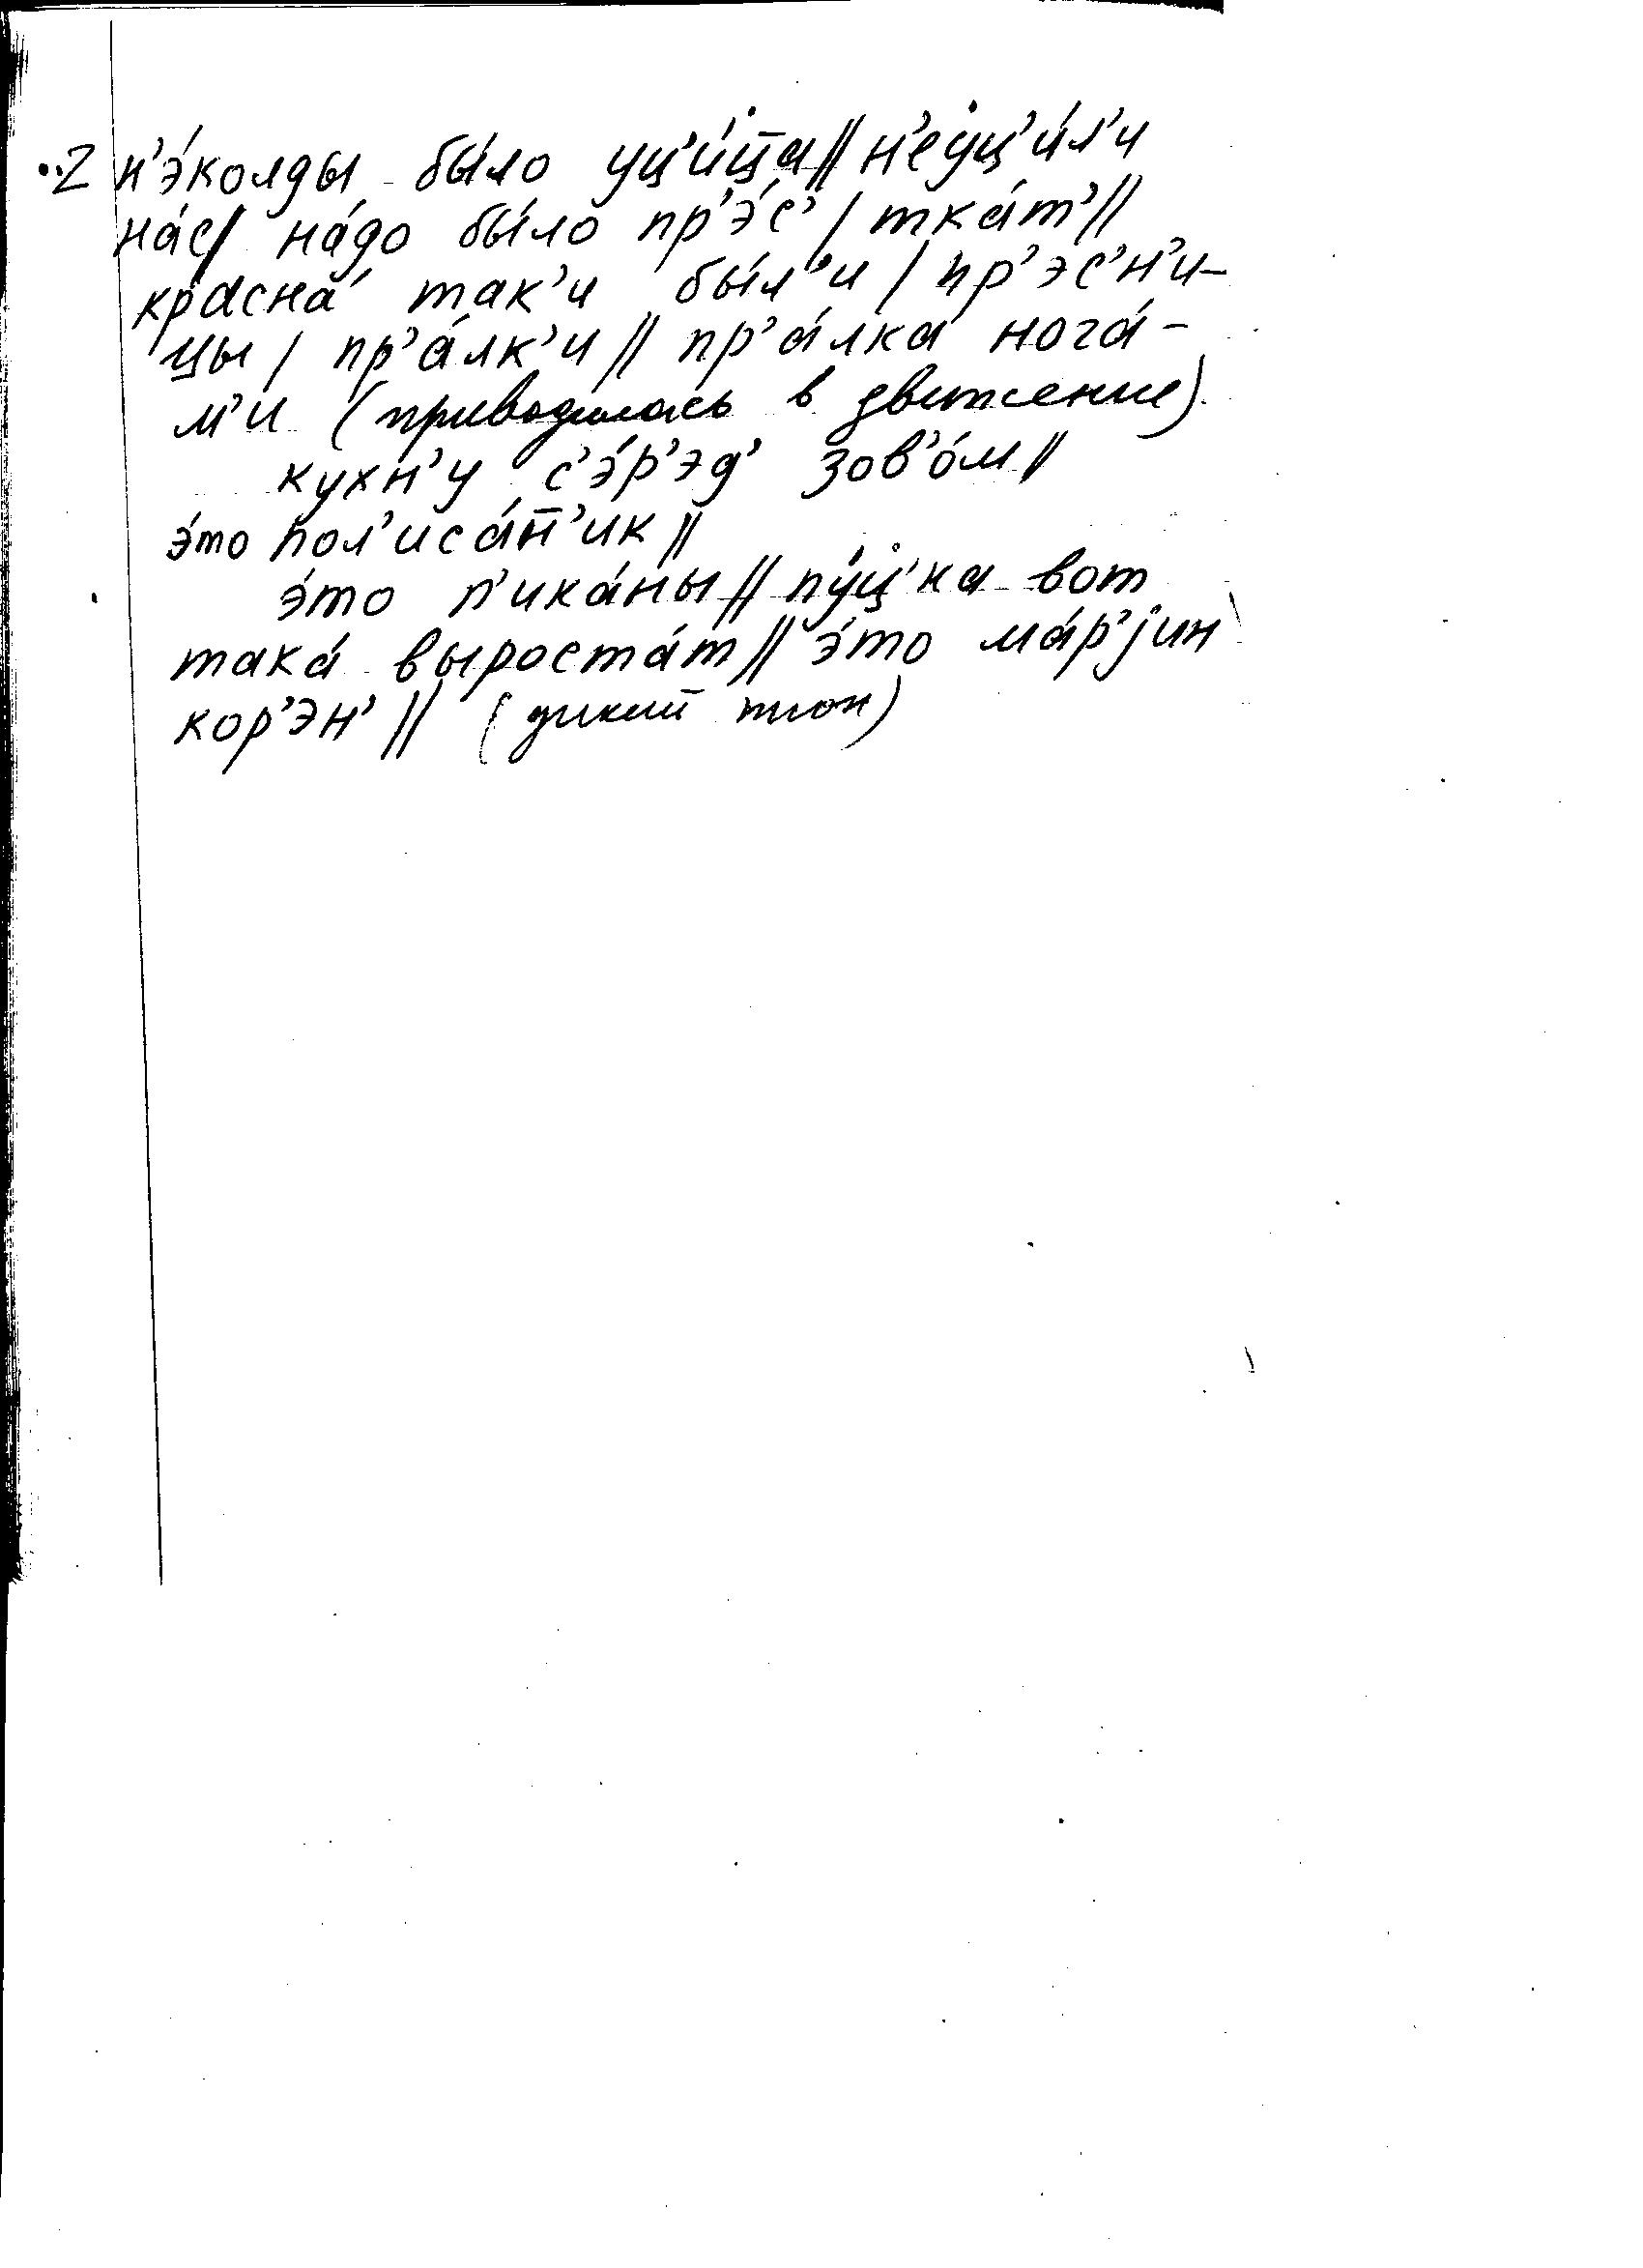 ..2 н’э́колды бы́ло уц’и́ц̄а // н’еуц’и́л’и
на́с/ на́до бы́ло пр’э́с’ / тка́т’//
красна́ так’и бы́л’и / пр’эс’н’и-
цы / пр’а́лк’и // пр’а́лка нога́-
м’и (приводилась в движение)
кухн’у с’э́р’эд’ зов’о́м //
э́то пол’иса́н̄’ик //
э́то п’ика́ны // пу́ц’ка вот
така́ выроста́т // э́то ма́р’јин
кор’эн’ // (дикий пион)